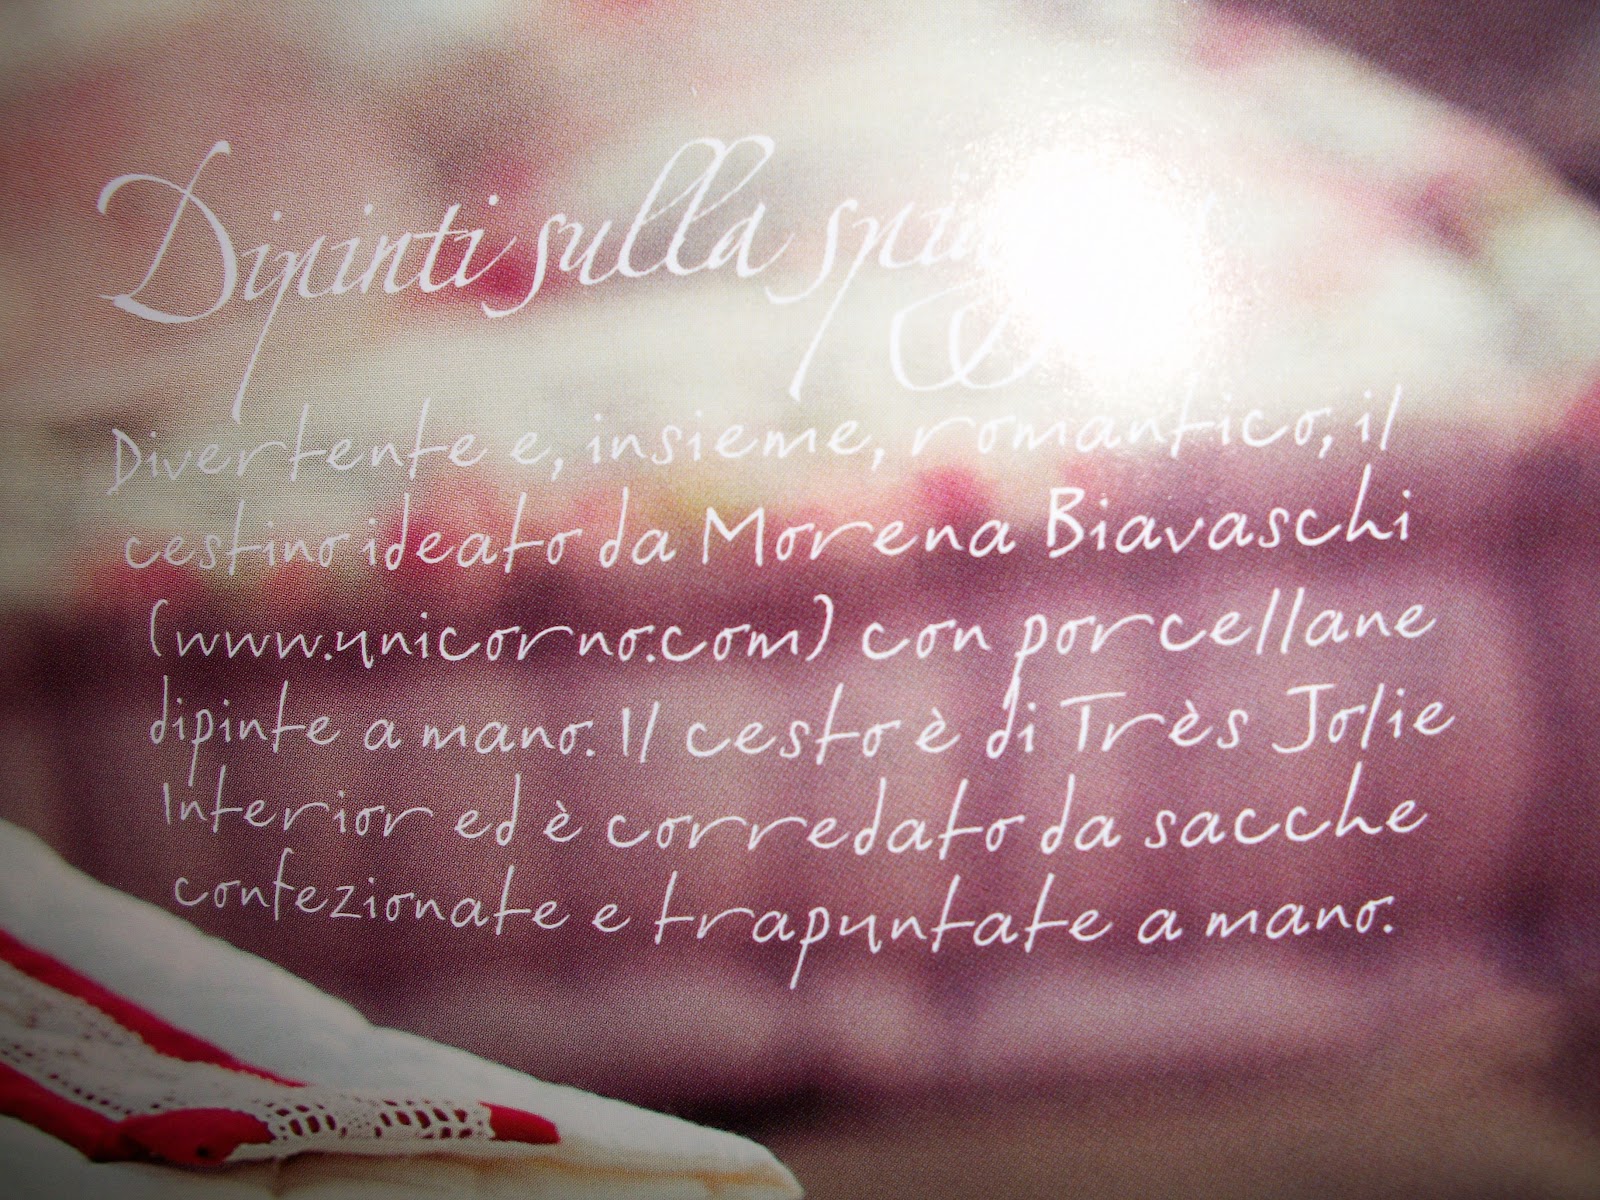 Dipinti sulla
Divertente e, insieme, romantico, il
cestino ideato da Morena Biavaschi
(www.ynicorno.com) con porcellane
dipinte a mano. Il cesto è di Très Jolie
Interior ed è corredato da sacche
confezionate e trapuntate a mano.